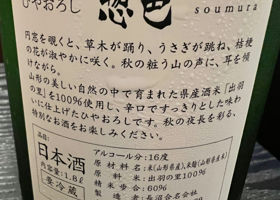 ひやおろし 惣邑
soumura
円窓を覗くと、草木が踊り、うさぎが跳ね、桔梗
の花が淑やかに咲く。秋の粧う山の声に、耳を傾
けながら。
山形の美しい自然の中で育まれた県産酒米「出羽
の里」を100%使用し、辛口ですっきりとした味わ
いに仕上げたひやおろしです。秋の夜長を彩る、
特別なお酒をお楽しみください。
品目:
日本酒
内容量:1.8ℓ
要冷蔵
アルコール分:16度
原材料名:米(山形県産)、米麹(山形県産米)
原料米:出羽の里100%
精米歩合:60%
製造者:長沼合名会社